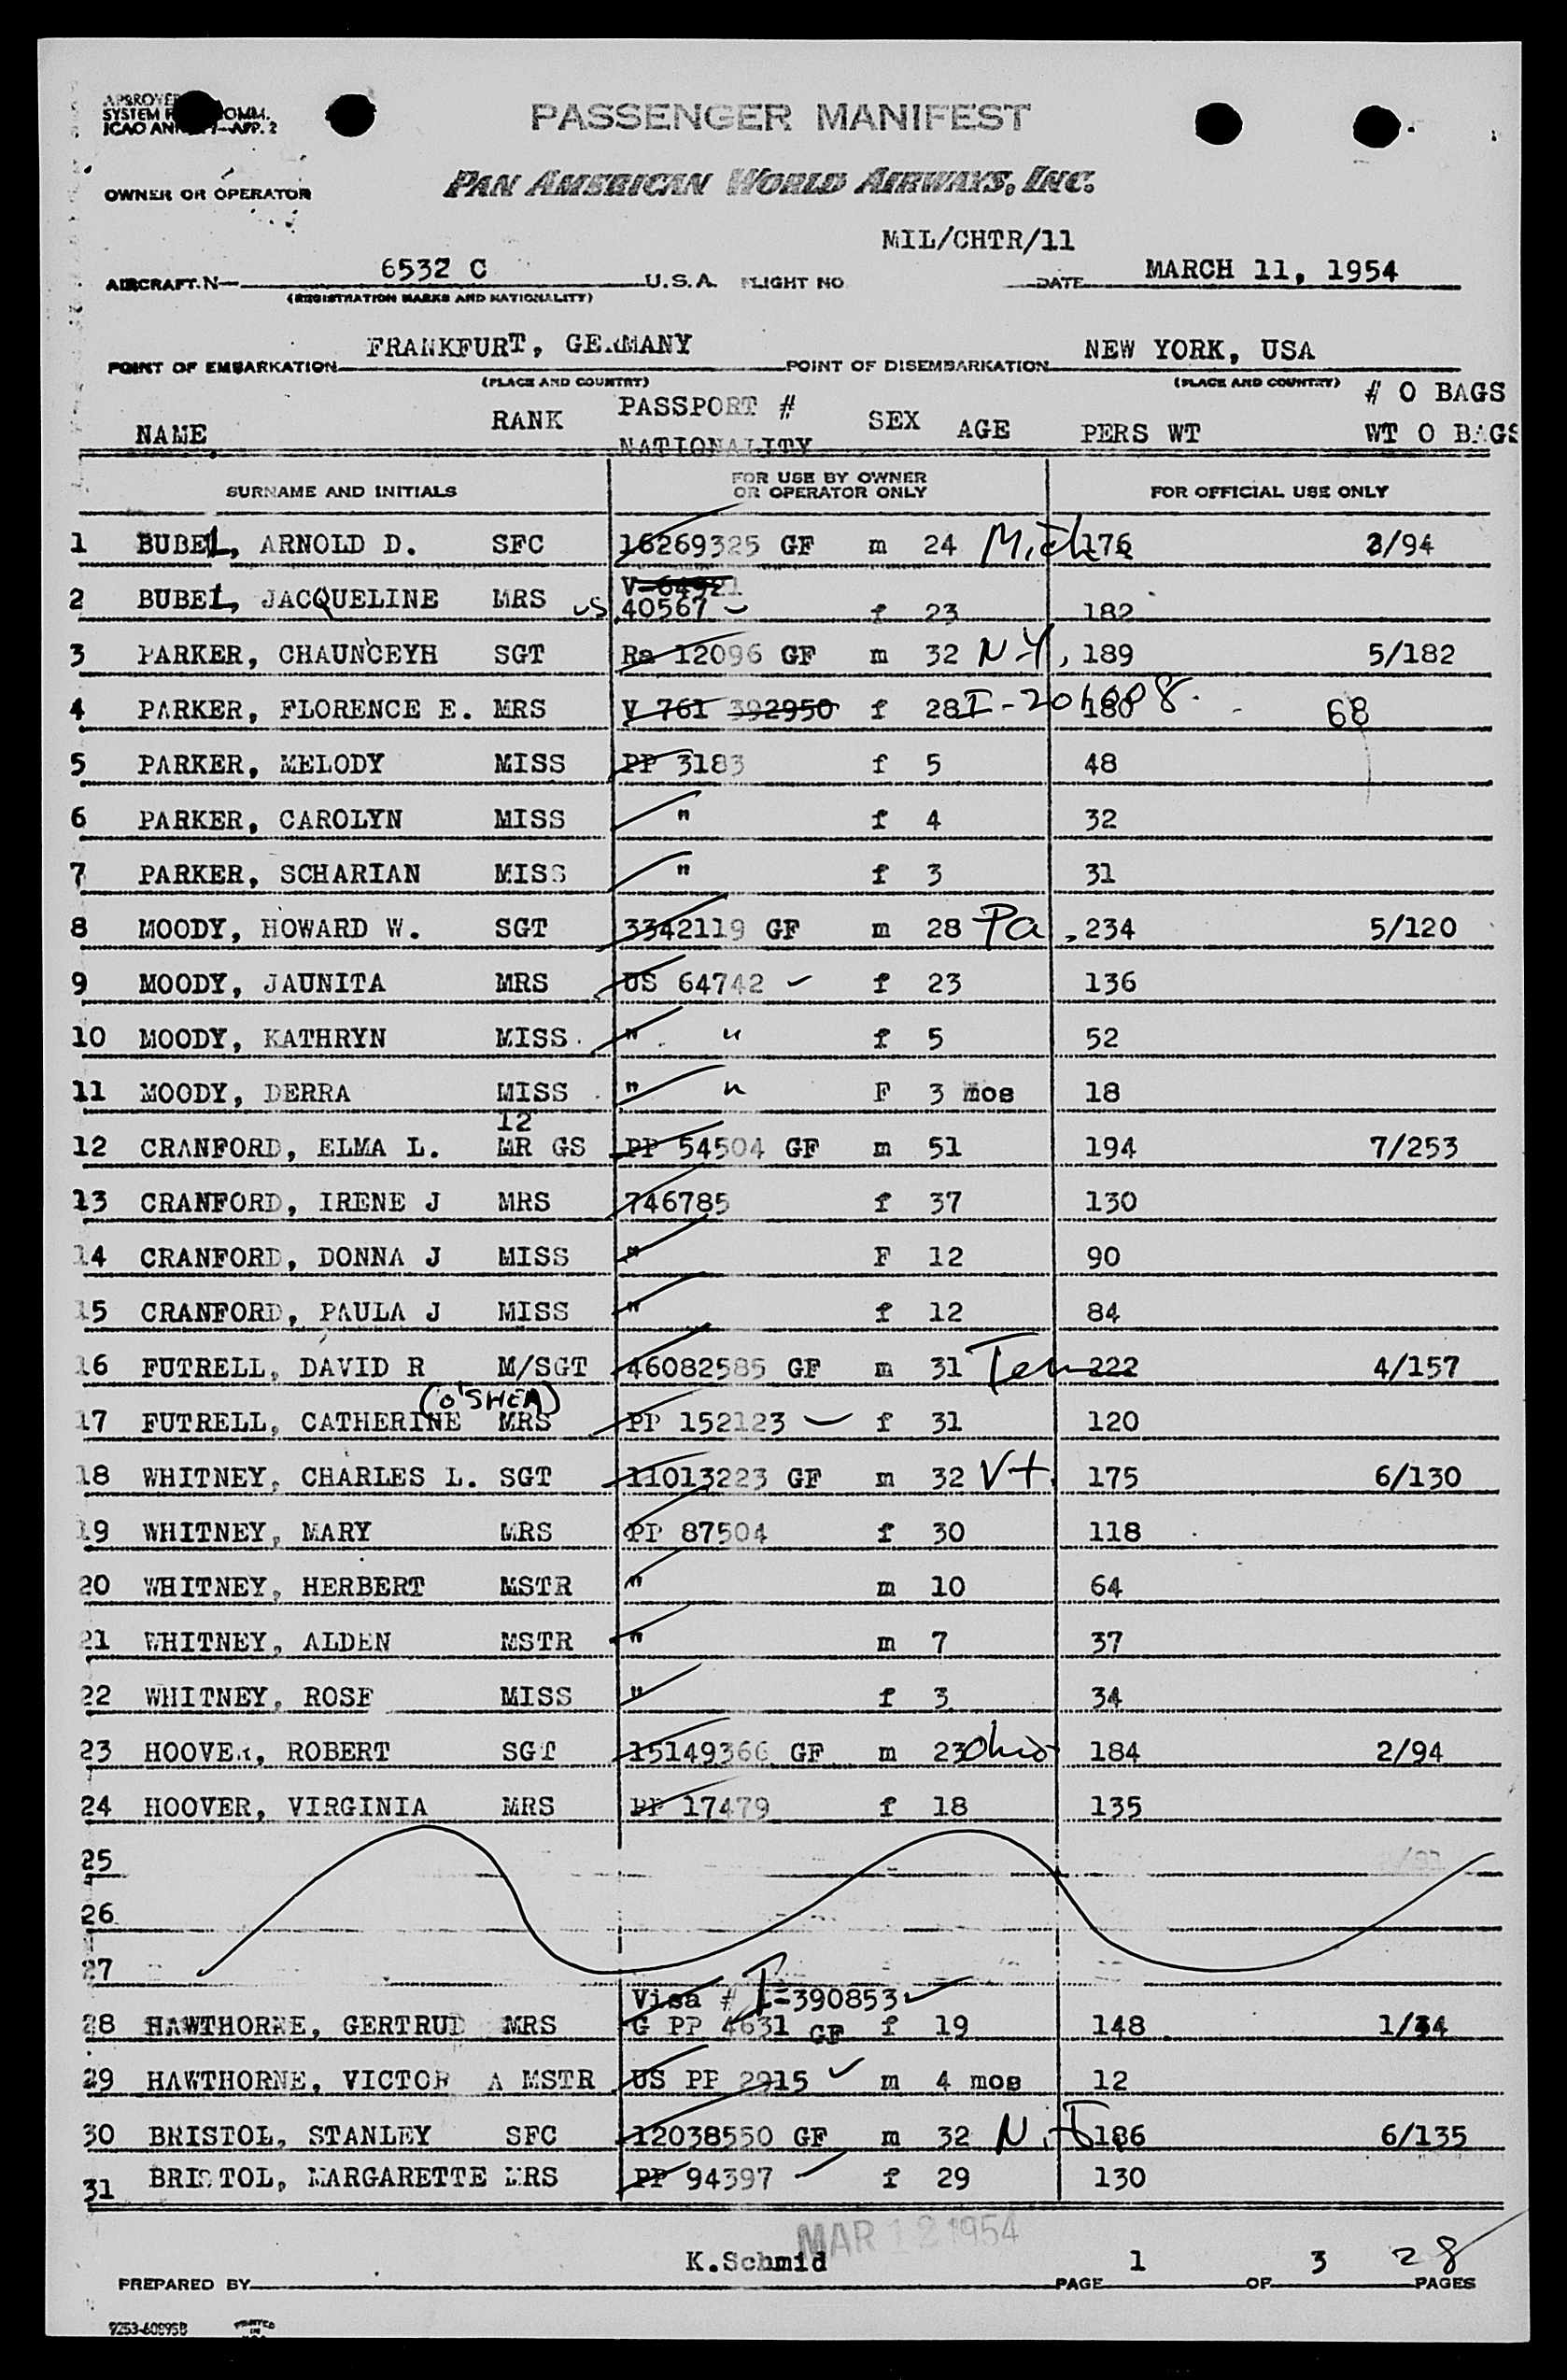 SYSTEM
PASSENGER MANIFEST
OWNER OR OPERATOR PAN AMERICAN WORLD AIRWAYS, INC.
MIL/CHTR/11
AIRCRAFT. N— 6532 C U.S.A. FLIGHT NO DATE MARCH 11, 1954
(REGISTRATION MARKS AND NATIONALITY)
POINT OF EMBARKATION FRANKFURT, GERMANY POINT OF DISEMBARKATION NEW YORK, USA
(PLACE AND COUNTRY) (PLACE AND COUNTRY) # O BAGS
NAME RANK PASSPORT # SEX AGE PERS WT WT O BAGS
NATIONALITY
SURNAME AND INITIALS FOR USE BY OWNER OR OPERATOR ONLY FOR OFFICIAL USE ONLY
1 BUBEL, ARNOLD D. SFC 16269325 GF m 24 Mich 176 3/94
V-64921
2 BUBEL, JACQUELINE MRS US 40567 f 23 182
3 PARKER, CHAUNCEYH SGT Ra 12096 GF m 32 N.Y, 189 5/182
4 PARKER, FLORENCE E. MRS V 761 392950 f 28 180 68
5 PARKER, MELODY MISS PP 3183 f 5 48
6 PARKER, CAROLYN MISS " f 4 32
7 PARKER, SCHARIAN MISS " f 3 31
8 MOODY, HOWARD W. SGT 3342119 GF m 28 Pa, 234 5/120
9 MOODY, JAUNITA MRS US 64742 f 23 136
10 MOODY, KATHRYN MISS " " f 5 52
11 MOODY, DERRA MISS " " F 3 mos 18
12
12 CRANFORD, ELMA L. MR GS PP 54504 GF m 51 194 7/253
13 CRANFORD, IRENE J MRS 746785 f 37 130
14 CRANFORD, DONNA J MISS " F 12 90
15 CRANFORD, PAULA J MISS " f 12 84
16 FUTRELL, DAVID R M/SGT 46082585 GF m 31 Ten 222 4/157
(O'SHEA)
17 FUTRELL, CATHERINE MRS PP 152123 f 31 120
18 WHITNEY, CHARLES L. SGT 11013223 GF m 32 Vt. 175 6/130
19 WHITNEY, MARY MRS PP 87504 f 30 118
20 WHITNEY, HERBERT MSTR " m 10 64
21 WHITNEY, ALDEN MSTR " m 7 37
22 WHITNEY, ROSE MISS " f 3 34
23 HOOVER, ROBERT SGT 15149366 GF m 23 Ohio 184 2/94
24 HOOVER, VIRGINIA MRS PP 17479 f 18 135
25
26
27
Visa # I-390853
28 HAWTHORNE, GERTRUD MRS G PP 4631 GF f 19 148 1/44
29 HAWTHORNE, VICTOR A MSTR US PP 2915 m 4 mos 12
30 BRISTOL, STANLEY SFC 12038550 GF m 32 N.J 186 6/135
31 BRISTOL, MARGARETTE MRS PP 94397 f 29 130
MAR 12 1954
PREPARED BY K.Schmid PAGE 1 OF 3 PAGES 28
9253-60895B PRINTED IN